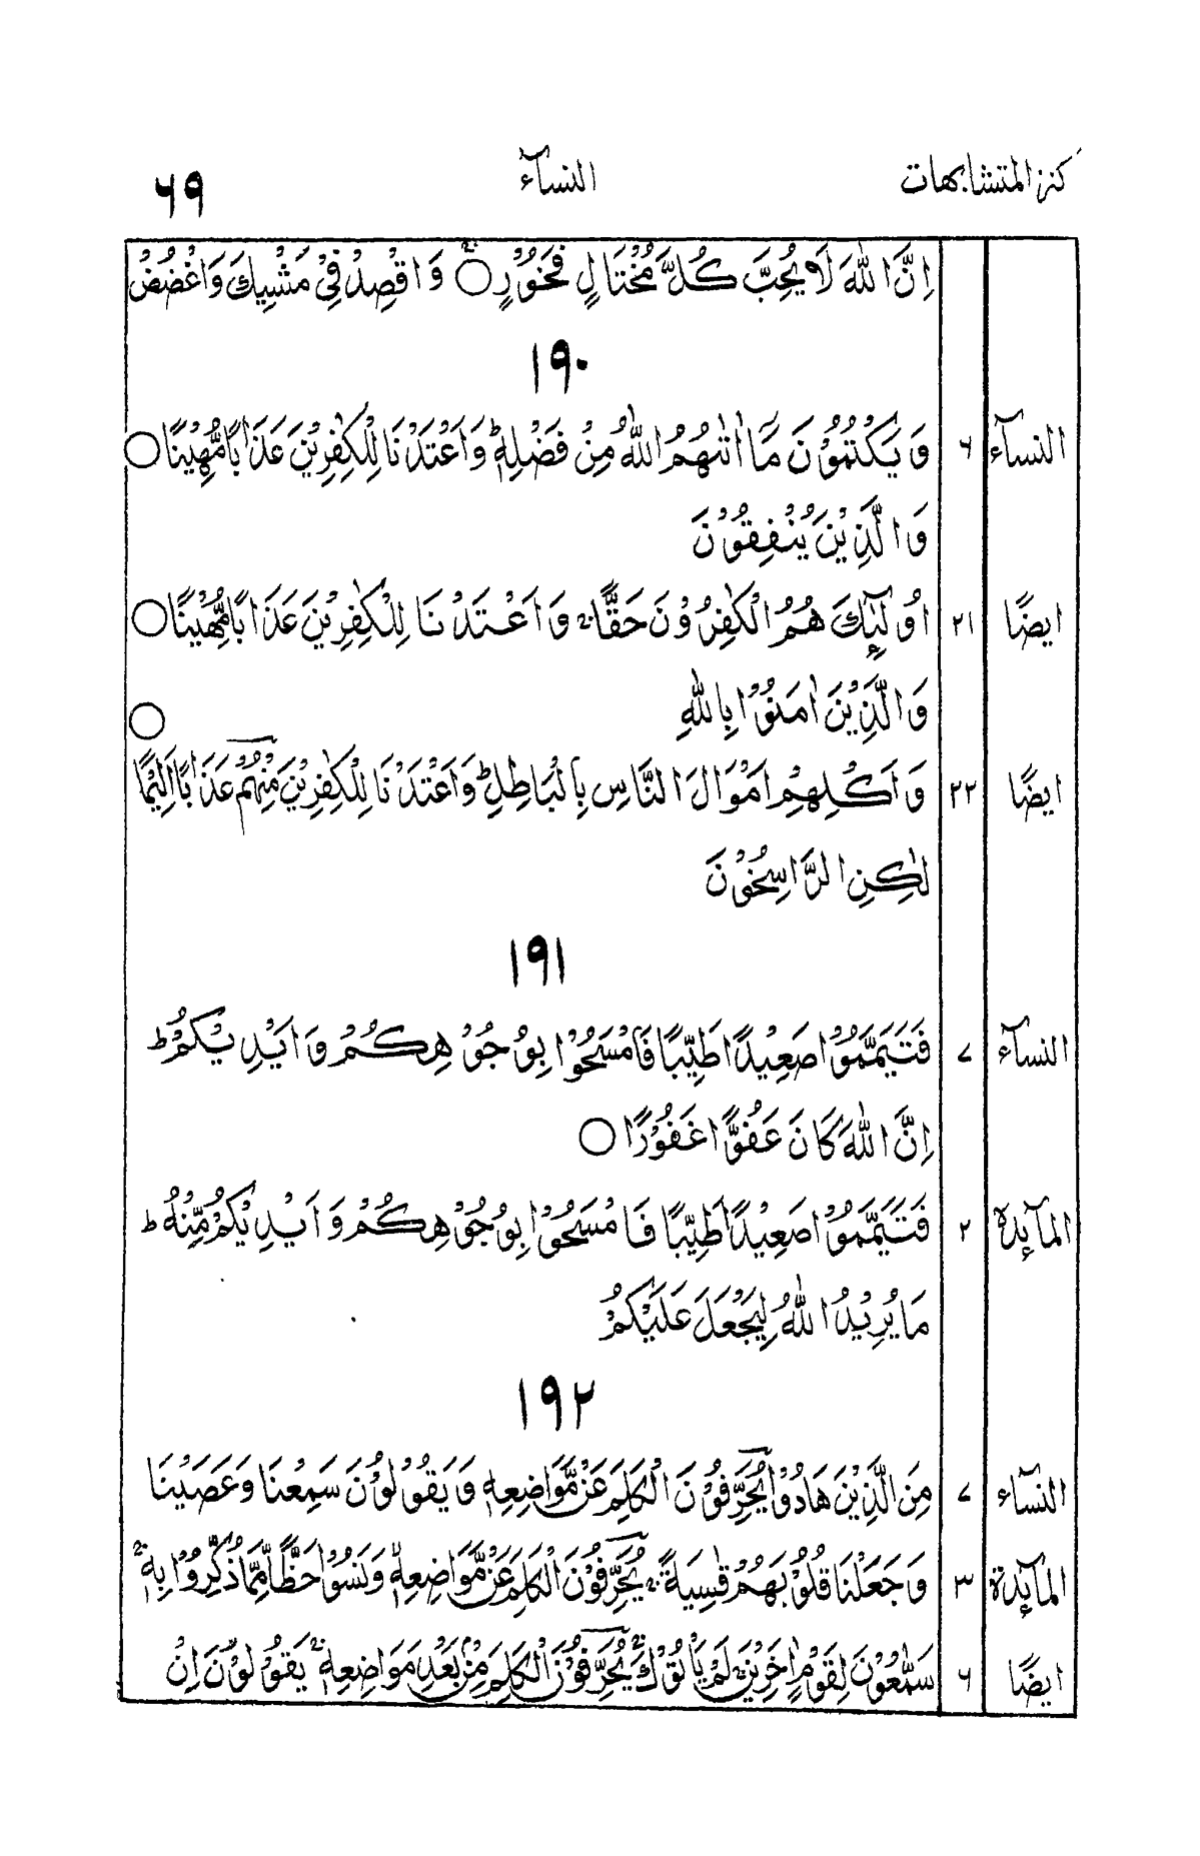 كنز المتشابهات النسآء ٦٩
اِنَّ اللّٰهَ لَا يُحِبُّ كُلَّ مُخْتَالٍ فَخُوْرٍ ○ وَاقْصِدْ فِيْ مَشْيِكَ وَاغْضُضْ
١٩٠
النسآء ٦ وَيَكْتُمُوْنَ مَآ اٰتٰهُمُ اللّٰهُ مِنْ فَضْلِهٖ ؕ وَاَعْتَدْنَا لِلْكٰفِرِيْنَ عَذَابًا مُّهِيْنًا ○
وَالَّذِيْنَ يُنْفِقُوْنَ
ايضًا ٢١ اُولٰٓئِكَ هُمُ الْكٰفِرُوْنَ حَقًّا ۚ وَاَعْتَدْنَا لِلْكٰفِرِيْنَ عَذَابًا مُّهِيْنًا ○
وَالَّذِيْنَ اٰمَنُوْا بِاللّٰهِ ○
ايضًا ٢٢ وَاَكْلِهِمْ اَمْوَالَ النَّاسِ بِالْبَاطِلِ ؕ وَاَعْتَدْنَا لِلْكٰفِرِيْنَ مِنْهُمْ عَذَابًا اَلِيْمًا
لٰكِنِ الرَّاسِخُوْنَ
١٩١
النسآء ٧ فَتَيَمَّمُوْا صَعِيْدًا طَيِّبًا فَامْسَحُوْا بِوُجُوْهِكُمْ وَاَيْدِيْكُمْ ؕ
اِنَّ اللّٰهَ كَانَ عَفُوًّا غَفُوْرًا ○
المآئدة ٢ فَتَيَمَّمُوْا صَعِيْدًا طَيِّبًا فَامْسَحُوْا بِوُجُوْهِكُمْ وَاَيْدِيْكُمْ مِّنْهُ ؕ
مَا يُرِيْدُ اللّٰهُ لِيَجْعَلَ عَلَيْكُمْ
١٩٢
النسآء ٧ مِنَ الَّذِيْنَ هَادُوْا يُحَرِّفُوْنَ الْكَلِمَ عَنْ مَّوَاضِعِهٖ وَيَقُوْلُوْنَ سَمِعْنَا وَعَصَيْنَا
المآئدة ٣ وَجَعَلْنَا قُلُوْبَهُمْ قٰسِيَةً ۚ يُحَرِّفُوْنَ الْكَلِمَ عَنْ مَّوَاضِعِهٖ ۙ وَنَسُوْا حَظًّا مِّمَّا ذُكِّرُوْا بِهٖ ۚ
ايضًا ٦ سَمّٰعُوْنَ لِقَوْمٍ اٰخَرِيْنَ ۙ لَمْ يَاْتُوْكَ ؕ يُحَرِّفُوْنَ الْكَلِمَ مِنْۢ بَعْدِ مَوَاضِعِهٖ ۚ يَقُوْلُوْنَ اِنْ